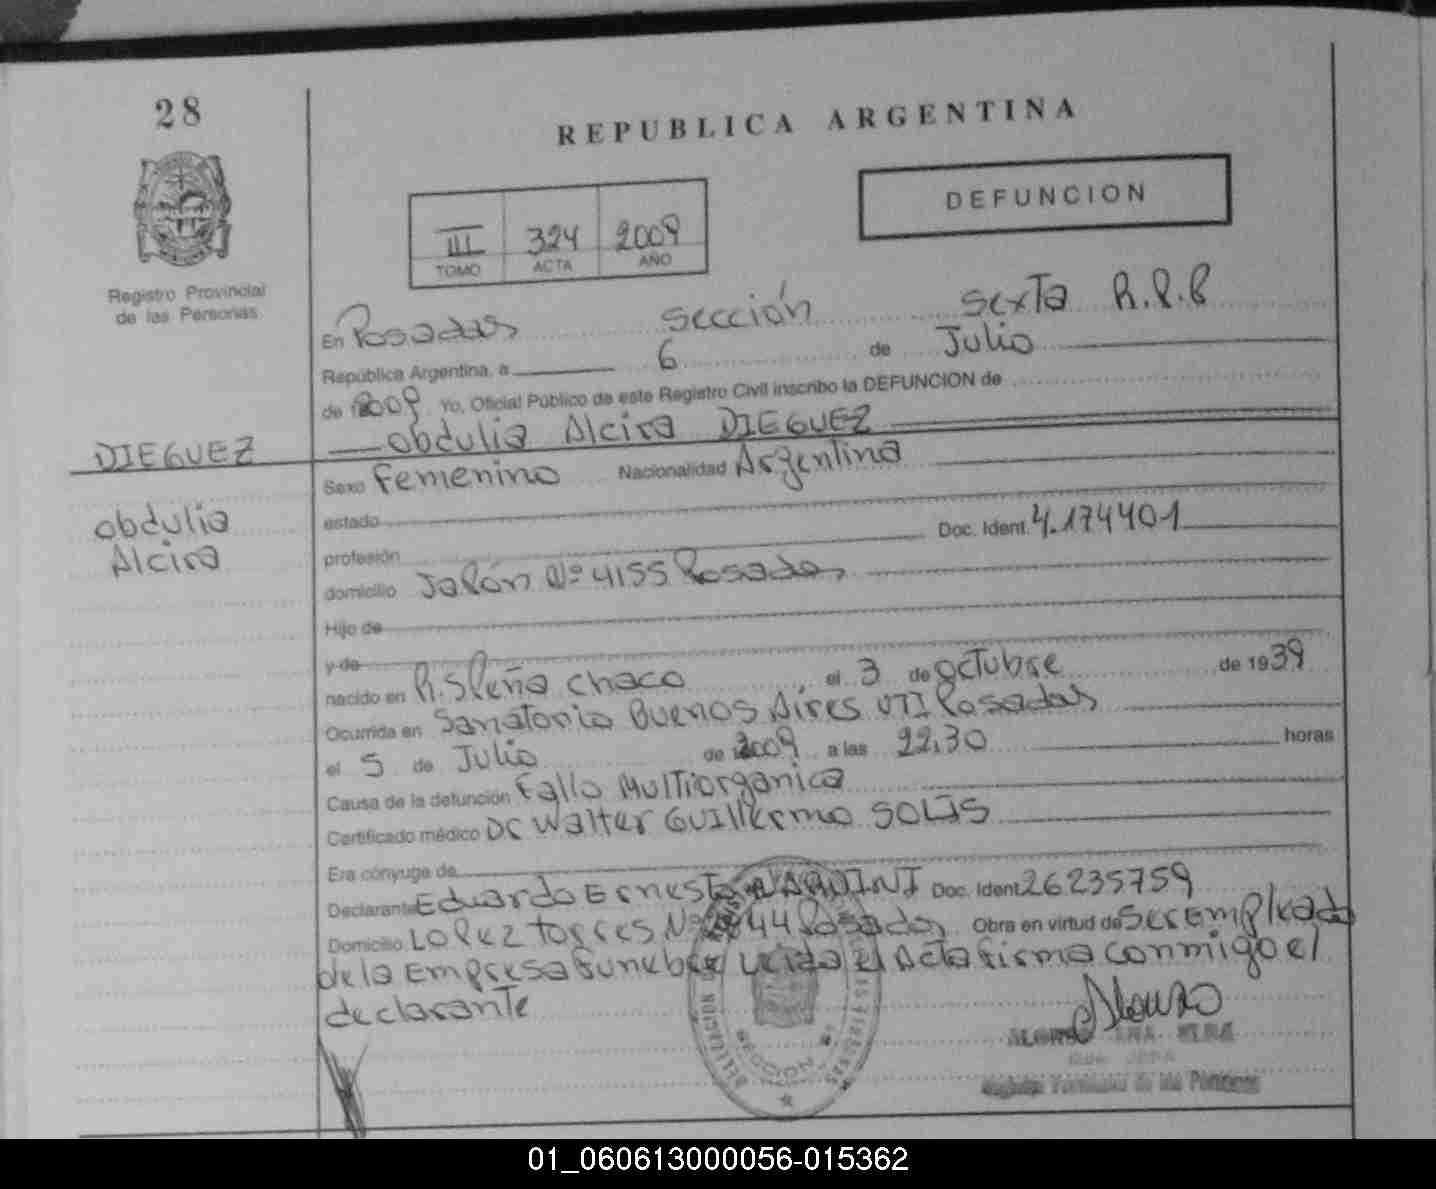 28
REPUBLICA ARGENTINA
DEFUNCION
III 324 2009
TOMO ACTA AÑO
Registro Provincial
de las Personas
En Posadas Sección Sexta R.P.P
República Argentina, a 6 de Julio
de 2009 Yo, Oficial Público de este Registro Civil inscribo la DEFUNCION de
DIEGUEZ
obdulia Alcira DIEGUEZ
Sexo Femenino Nacionalidad Argentina
obdulia
Alcira
estado
profesión Doc. Ident. 4.174401
domicilio Japón Nº 4155 Posadas
Hijo de
y de
nacido en R.S Peña Chaco el 3 de octubre de 1939
Ocurrida en Sanatorio Buenos Aires UTI Posadas
el 5 de Julio de 2009 a las 22,30 horas
Causa de la defunción Falla Multiorganica
Certificado médico Dr Walter Guillermo SOLIS
Era cónyuge de
Declarante Eduardo Ernesto Doc. Ident 26235759
Domicilio Lopez torres Nº 44 Posadas Obra en virtud de Ser Empleado
de la Empresa funebre Leida el Acta firma conmigo el
declarante
SECCION
Alonso
ALONSO ANA
Registro Provincial de las Personas
01_060613000056-015362